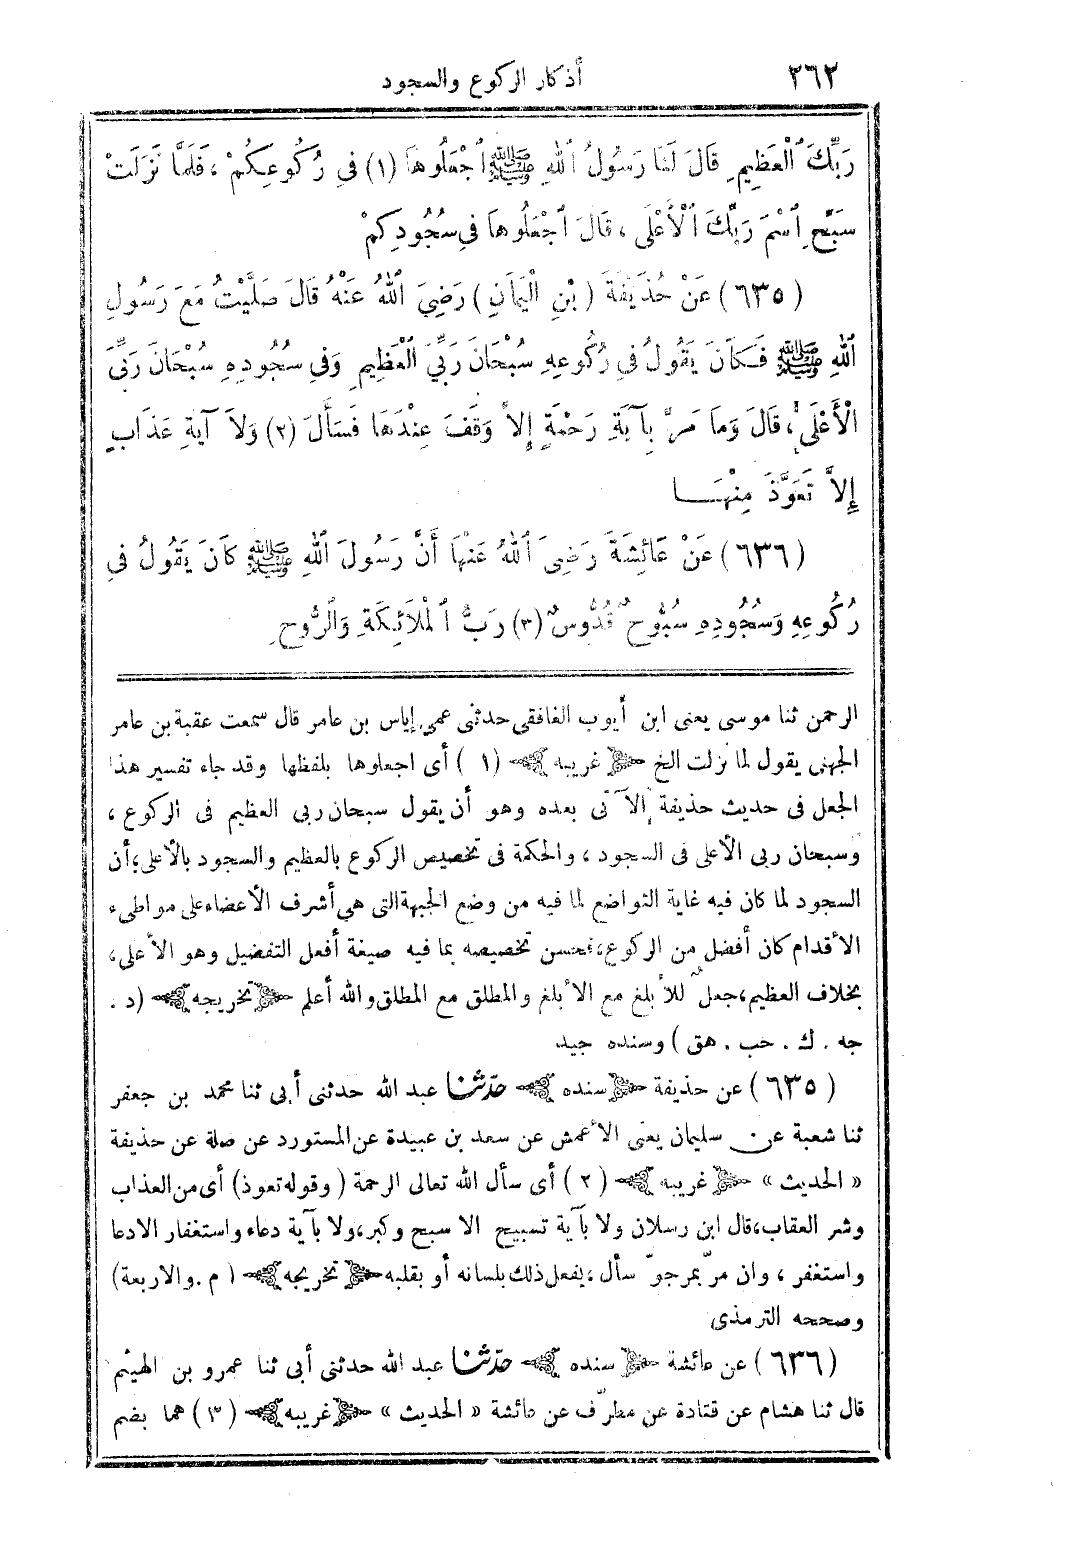 ٢٦٢
أذكار الركوع والسجود
رَبِّكَ ٱلْعَظِيمِ قَالَ لَنَا رَسُولُ ٱللهِ ﷺ ٱجْعَلُوهَا (١) فِي رُكُوعِكُمْ ، فَلَمَّا نَزَلَتْ
سَبِّحِ ٱسْمَ رَبِّكَ ٱلْأَعْلَى ، قَالَ ٱجْعَلُوهَا فِي سُجُودِكُمْ
(٦٣٥) عَنْ حُذَيْفَةَ (بْنِ الْيَمَانِ) رَضِيَ ٱللهُ عَنْهُ قَالَ صَلَّيْتُ مَعَ رَسُولِ
ٱللهِ ﷺ فَكَانَ يَقُولُ فِي رُكُوعِهِ سُبْحَانَ رَبِّيَ ٱلْعَظِيمِ وَفِي سُجُودِهِ سُبْحَانَ رَبِّيَ
الْأَعْلَى، قَالَ وَمَا مَرَّ بِآيَةِ رَحْمَةٍ إِلاَّ وَقَفَ عِنْدَهَا فَسَأَلَ (٢) وَلاَ آيَةِ عَذَابٍ
إِلاَّ تَعَوَّذَ مِنْهَا
(٦٣٦) عَنْ عَائِشَةَ رَضِيَ ٱللهُ عَنْهَا أَنَّ رَسُولَ ٱللهِ ﷺ كَانَ يَقُولُ فِي
رُكُوعِهِ وَسُجُودِهِ سُبُّوحٌ قُدُّوسٌ (٣) رَبُّ ٱلْمَلَائِكَةِ وَالرُّوحِ
الرحمن ثنا موسى يعنى ابن أيوب الغافقى حدثنى عمى إياس بن عامر قال سمعت عقبة بن عامر
الجهنى يقول لما نزلت الخ ﴿ غريبه ﴾ (١) أى اجعلوها بلفظها وقد جاء تفسير هذا
الجعل فى حديث حذيفة الآتى بعده وهو أن يقول سبحان ربى العظيم فى الركوع ،
وسبحان ربى الأعلى فى السجود ، والحكمة فى تخصيص الركوع بالعظيم والسجود بالأعلى ، أن
السجود لما كان فيه غاية التواضع لما فيه من وضع الجبهة التى هى أشرف الأعضاء على مواطىء
الأقدام كان أفضل من الركوع، فحسن تخصيصه بما فيه صيغة أفعل التفضيل وهو الأعلى،
بخلاف العظيم، جعل للأبلغ مع الأبلغ والمطلق مع المطلق والله أعلم ﴿ تخريجه ﴾ (د .
جه . ك . حب . هق) وسنده جيد
(٦٣٥) عن حذيفة ﴿ سنده ﴾ حدّثنا عبد الله حدثنى أبى ثنا محمد بن جعفر
ثنا شعبة عن سليمان يعنى الأعمش عن سعد بن عبيدة عن المستورد عن صلة عن حذيفة
« الحديث » ﴿ غريبه ﴾ (٢) أى سأل الله تعالى الرحمة (وقوله تعوذ) أى من العذاب
وشر العقاب، قال ابن رسلان ولا بآية تسبيح الا سبح وكبر، ولا بآية دعاء واستغفار الا دعا
واستغفر ، وان مرّ بمرجوّ سأل ، يفعل ذلك بلسانه أو بقلبه ﴿ تخريجه ﴾ (م . والاربعة)
وصححه الترمذى
(٦٣٦) عن عائشة ﴿ سنده ﴾ حدّثنا عبد الله حدثنى أبى ثنا عمرو بن الهيثم
قال ثنا هشام عن قتادة عن مطرّف عن عائشة « الحديث » ﴿ غريبه ﴾ (٣) هما بضم